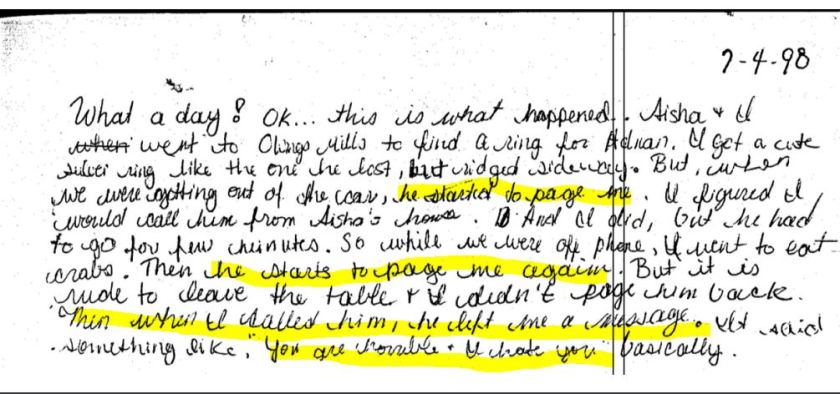 7-4-98
What a day! OK... this is what happened. Aisha & I
when went to Owings Mills to find a ring for Adnan. I got a cute
silver ring like the one he lost, but ridged sideway. But, when
we were getting out of the car, he started to page me. I figured I
would call him from Aisha's house. And I did, but he had
to go for few minutes. So while we were off phone, I went to eat
crabs. Then he starts to page me again. But it is
rude to leave the table & I didn't page him back.
Then when I called him, he left me a message. It said
something like, "You are horrible & I hate you" basically.